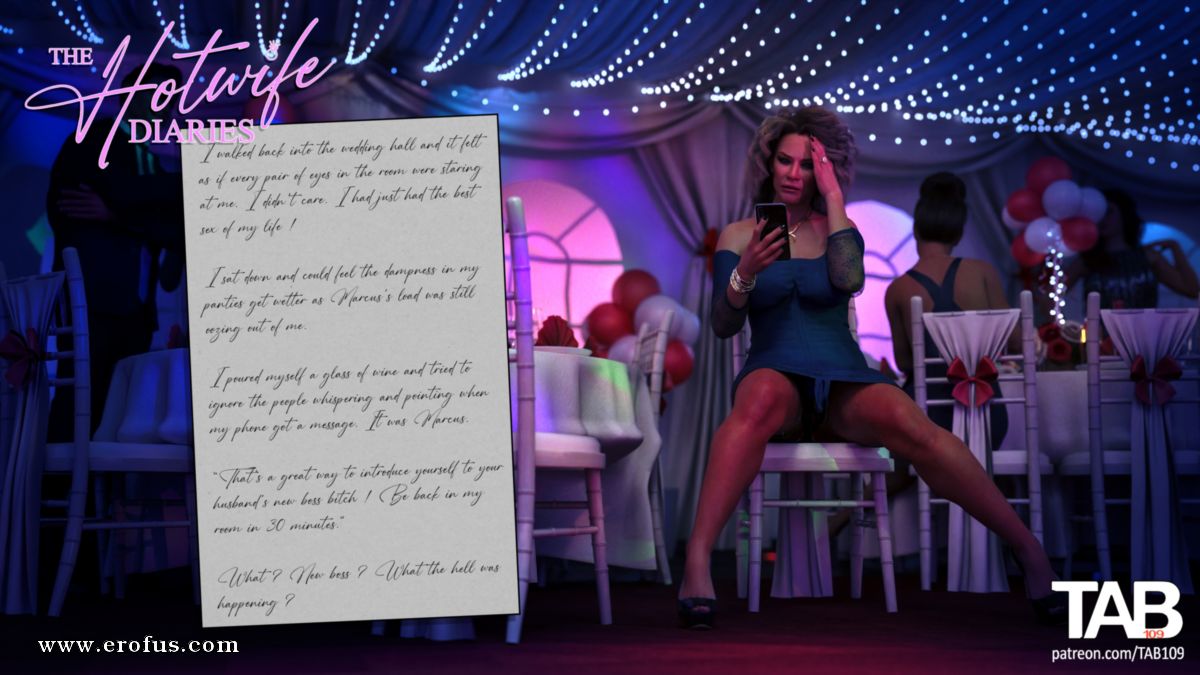 THE
Hotwife
DIARIES
I walked back into the wedding hall and it felt
as if every pair of eyes in the room were staring
at me. I didn't care. I had just had the best
sex of my life !
I sat down and could feel the dampness in my
panties get wetter as Marcus's load was still
oozing out of me.
I poured myself a glass of wine and tried to
ignore the people whispering and pointing when
my phone got a message. It was Marcus.
"That's a great way to introduce yourself to your
husband's new boss bitch ! Be back in my
room in 30 minutes."
What ? New boss ? What the hell was
happening ?
www.erofus.com
TAB
109
patreon.com/TAB109